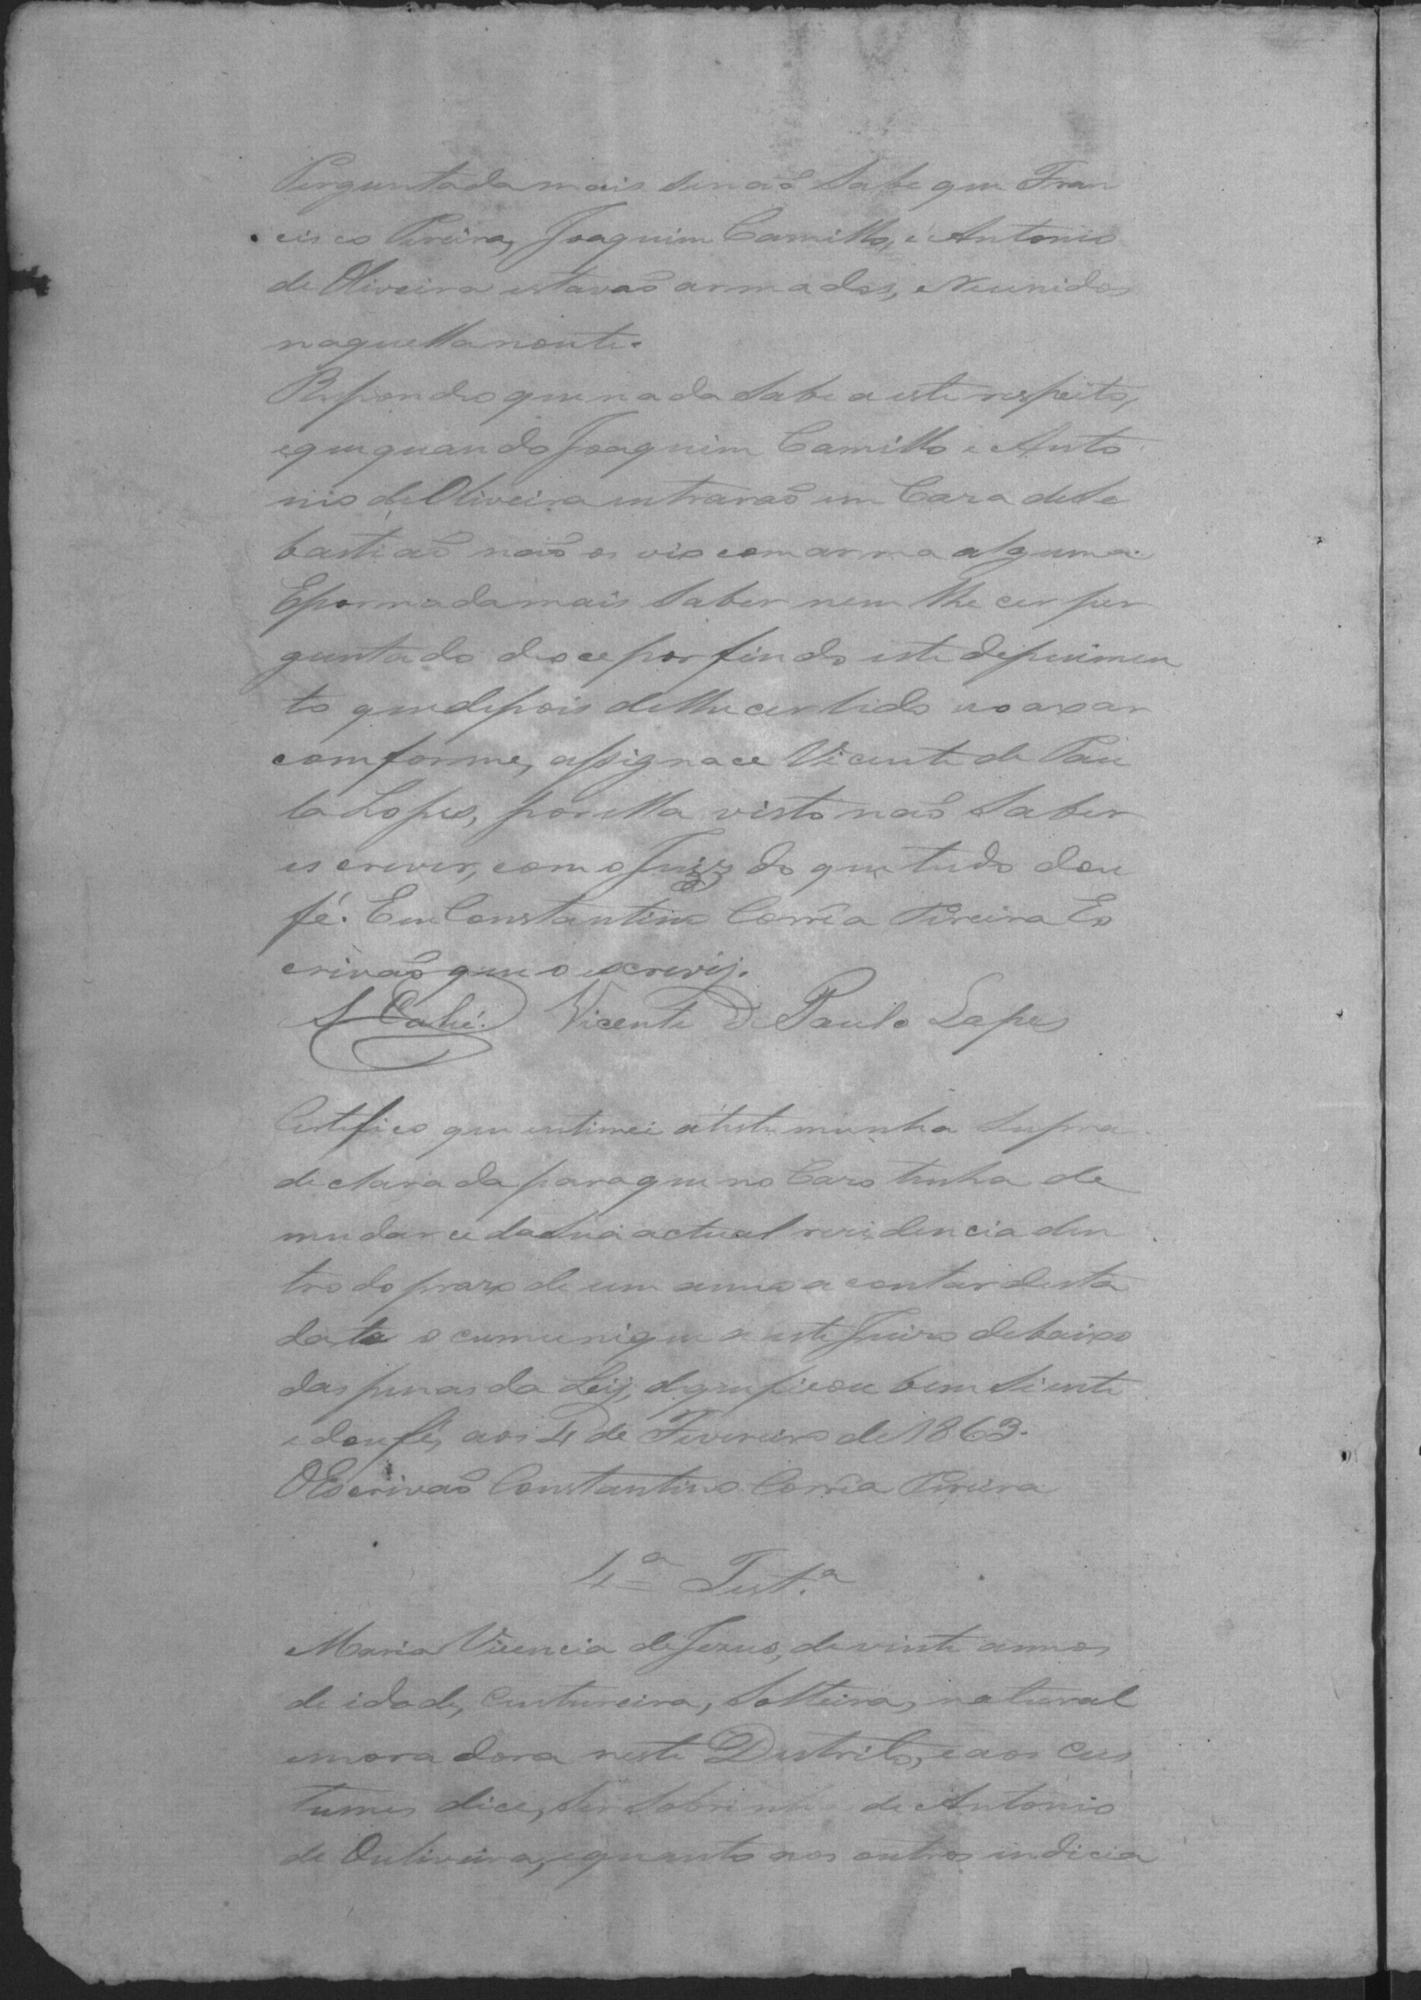 Perguntada mais se não Sabe que Fran
cisco Pereira, Joaquim Camillo, e Antonio
de Oliveira estavaõ armados, e Reunidos
naquella noute.
Respondeo que nada Sabe a este respeito,
e que quando Joaquim Camillo e Anto
nio de Oliveira entraraõ em Caza de Se
bastiaõ naõ os vio com arma alguma.
E por nada mais Saber nem lhe cer per
guntado dece por findo este depuimen
to que depois de lhe cer lido e o axar
comforme, assigna ce Vicente de Pau
la Lopes, por ella visto naõ Saber
escrever, com o Juiz do que tudo dou
fé. Eu Constantino Corrêa Pereira Es
crivaõ que o escrevij.
Vicente de Paulo Lopes
Certifico que entimei a testemunha Supra
declarada para que no Cazo tenha de
mudar ce da Sua actual rezidencia den
tro do prazo de um anno a contar desta
data o cumunique a este Juizo debaixo
das penas da Leij, do que ficou bem Siente
e dou fé, aos 4 de Fevereiro de 1863.
O Escrivaõ Constantino Corrêa Pereira
4ª Test.ª
Maria Vicencia de Jezus, de vinte annos
de idade, custureira, Solteira, natural
e moradora neste Destrito, e aos cus
tumes dice, Ser Sobrinha de Antonio
de Outiveira, e quanto aos outros indicia